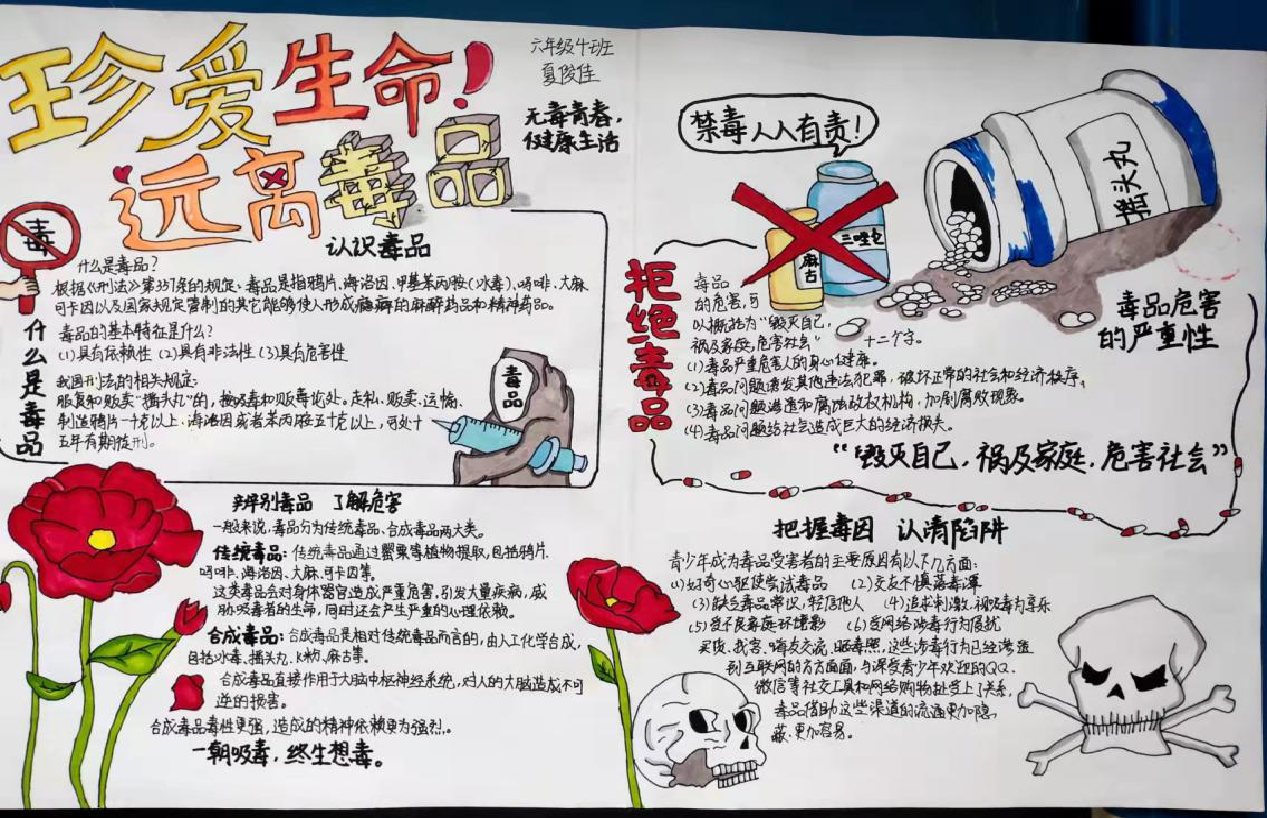 珍爱生命!
远离毒品
六年级
夏俊佳
无毒青春,
健康生活
毒
认识毒品
什么是毒品
什么是毒品?
根据《刑法》第357条的规定,毒品是指鸦片、海洛因、甲基苯丙胺(冰毒)、吗啡、大麻
可卡因以及国家规定管制的其它能够使人形成瘾癖的麻醉药品和精神药品。
毒品的基本特征是什么?
(1)具有依赖性 (2)具有非法性 (3)具有危害性
我国刑法的相关规定:
服食和贩卖“摇头丸”的,按吸毒和贩毒论处。走私、贩卖、运输、
制造鸦片一千克以上,海洛因或者苯丙胺五十克以上,可处十
五年有期徒刑。
毒品
辨别毒品 了解危害
一般来说,毒品分为传统毒品、合成毒品两大类。
传统毒品:传统毒品通过罂粟等植物提取,包括鸦片、
吗啡、海洛因、大麻、可卡因等。
这类毒品会对身体器官造成严重危害,引发大量疾病,威
胁吸毒者的生命,同时还会产生严重的心理依赖。
合成毒品:合成毒品是相对传统毒品而言的,由人工化学合成,
包括冰毒、摇头丸、K粉、麻古等。
合成毒品直接作用于大脑中枢神经系统,对人的大脑造成不可
逆的损害。
合成毒品毒性更强,造成的精神依赖更为强烈。
一朝吸毒,终生想毒。
禁毒人人有责!
三唑仑
麻古
摇头丸
拒绝毒品
毒品危害
的严重性
毒品
的危害,可
以概括为“毁灭自己,
祸及家庭,危害社会” 十二个字。
(1)毒品严重危害人的身心健康。
(2)毒品问题诱发其他违法犯罪,破坏正常的社会和经济秩序。
(3)毒品问题渗透和腐蚀政权机构,加剧腐败现象。
(4)毒品问题给社会造成巨大的经济损失。
“毁灭自己,祸及家庭,危害社会”
把握毒因 认清陷阱
青少年成为毒品受害者的主要原因有以下几方面:
(1)好奇心驱使尝试毒品 (2)交友不慎落毒潭
(3)缺乏毒品常识,轻信他人 (4)追求刺激,视吸毒为享乐
(5)受不良家庭环境影 (6)受网络涉毒行为侵扰
买孩、找客、嗨友交流、晒毒照,这些涉毒行为已经渗透
到互联网的方方面面,与深受青少年欢迎的QQ、
微信等社交工具和网络购物扯上了关系,
毒品借助这些渠道的流通更加隐
蔽、更加容易。